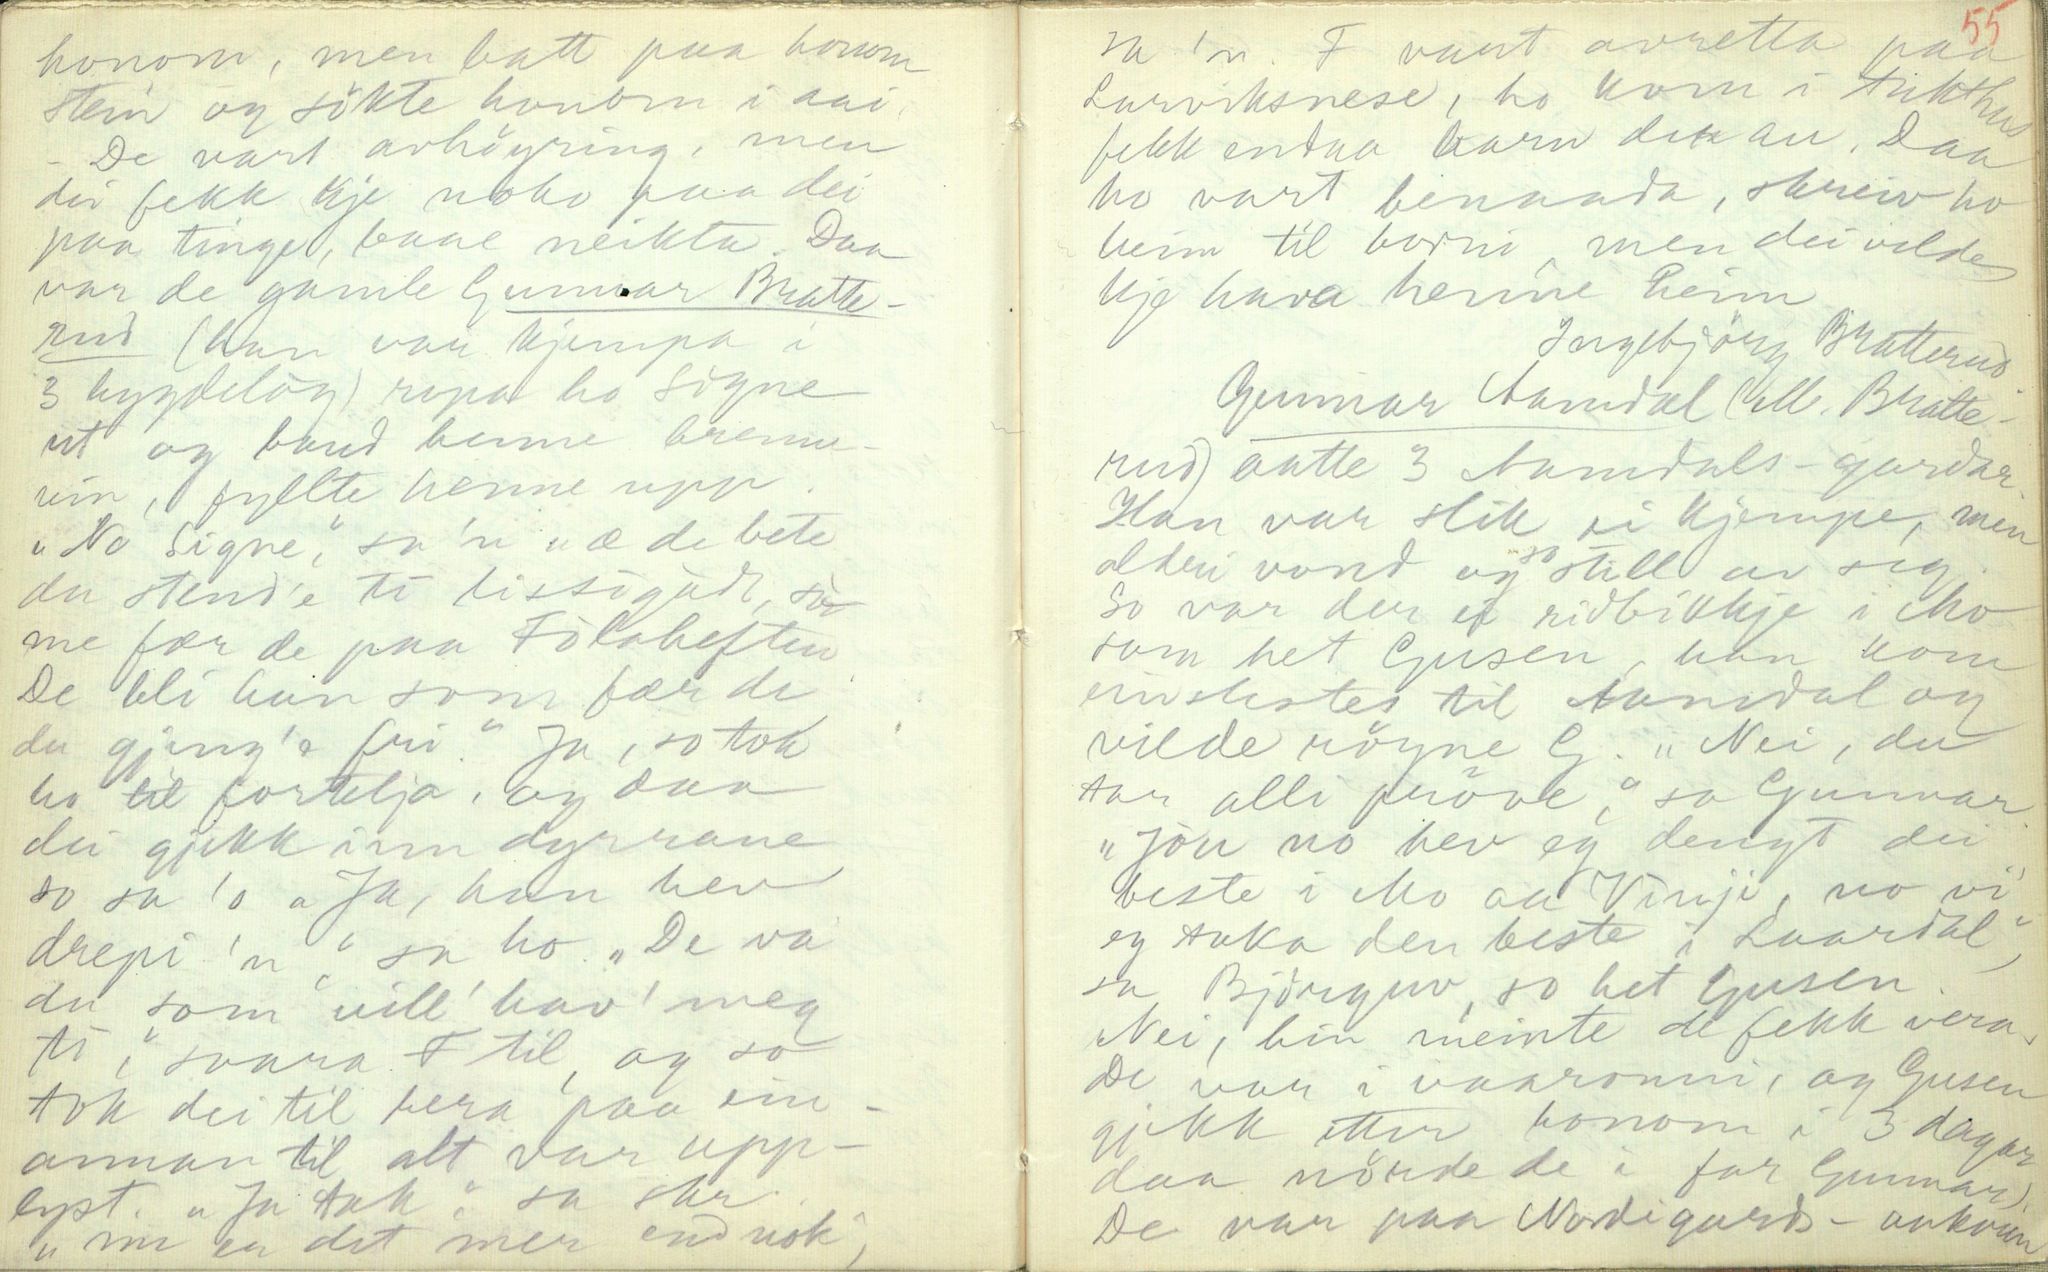 honom, men batt paa honom
stein og sökte honom i aai.
- De vart avhöyring, men
dei fekk kje noko paa dei
paa tinge, baae neikta. Daa
var de gamle Gunnar Bratte-
rud (han var kjempa i
3 bygdelög) ropa ho Signe
ut og baud henne brenne-
vin, fyllte henne upp.
"No Signe," sa'n "æ de bete
du stend'e ti
me fær de paa Folaheften
De bli han som fær de
du gjeng'e fri." Ja, so tok
ho til fortelja, og daa
dei gjekk inn dyrrane
so sa 'o "Ja, han hev
drepi 'n," sa ho. "De va
du som vill' hav' meg
ti," svara F til, og so
tok dei til bera paa ein-
annan til alt var upp-
lyst. "Ja tak." sa skr.
"nu er det mer end nok",
55
sa 'n. F vart avretta paa
Larviksnese, ho kom i tukthus
fekk endaa barn der au. Daa
ho vart benaada, skreiv ho
heim til borni, men dei vilde
kje hava henne heim
Ingebjörg Bratterud.
Gunnar Aamdal (ell. Bratte-
rud) aatte 3 Aamdals-gardar.
Han var slik ei kjempe, men
alderi vond og so still av seg.
So var der ei ridbikkje i Mo
som het Gusen, han kom
einstestes til Aamdal og
vilde röyne G. "Nei, du
tar alli pröve," sa Gunnar.
"Jou no hev eg dengt dei
beste i Mo aa Vinje, no vi'
eg taka den beste i Laardal,"
sa Björguv, so het Gusen.
Nei, hin meinte de fekk vera.
De var i vaaronni, og Gusen
gjekk etter honom i 3 dagar
daa nörde de i for Gunnar.
De var paa Nordigards-